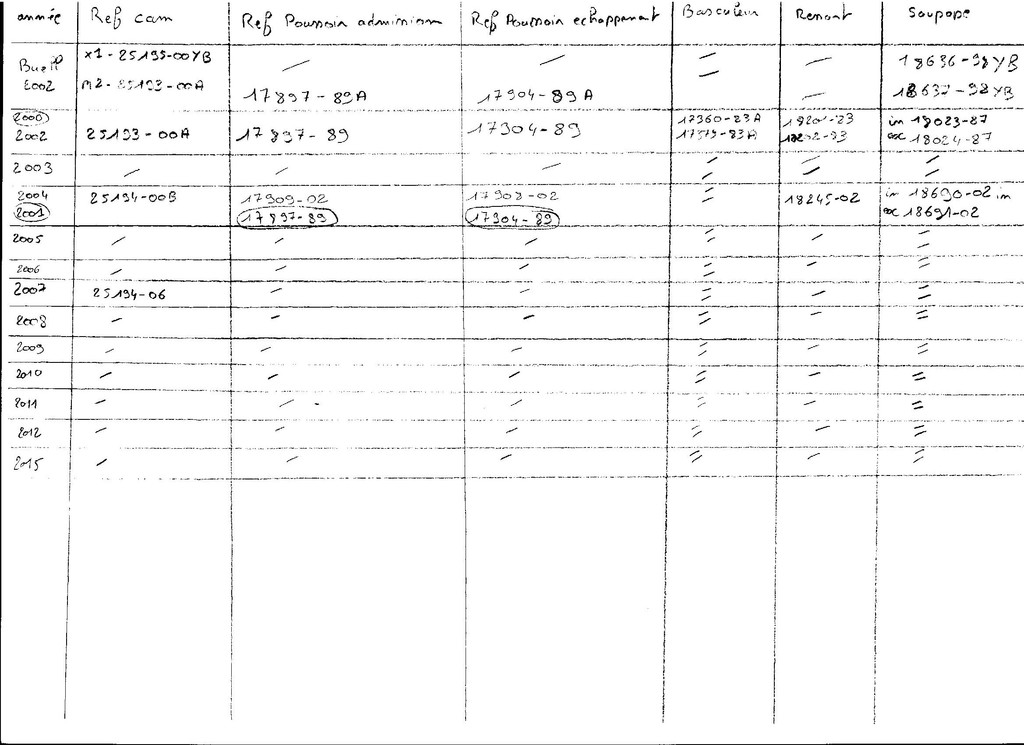 année Ref cam Ref Poussoir admission Ref Poussoir echappement Basculeur Ressort Soupape
Buell x1-25195-00YB — — — — 18636-98YB
2002 M2-25193-00A 17897-89A 17904-89A — — 18637-98YB
2000 17360-83A 18201-83 in 18023-87
2002 25193-00A 17897-89 17904-89 17375-83A 18202-83 ex 18024-87
2003 / / / // // //
2004 25194-00B 17909-02 17908-02 // 18245-02 in 18690-02 in
2001 17897-89 17904-89 ex 18691-02
2005 / / / // / //
2006 / / / // / //
2007 25194-06 / / // / //
2008 / / / // / //
2009 / / / // / //
2010 / / / // / //
2011 / / / // / //
2012 / / / // / //
2015 / / / // / //